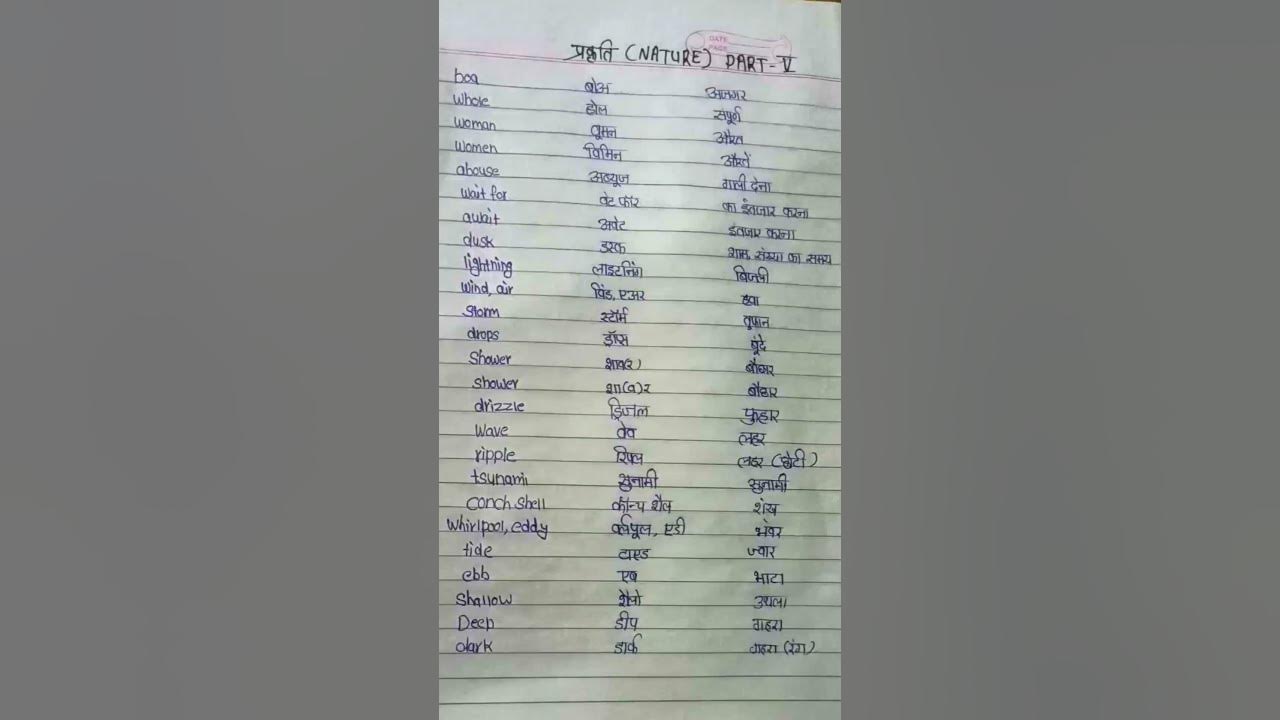 DATE
PAGE
प्रकृति (NATURE) PART-V
boa बोअ अजगर
whole होल संपूर्ण
woman वूमन औरत
women विमिन औरतें
abouse अब्यूज गाली देना
wait for वेट फॉर का इंतजार करना
await अवेट इंतजार करना
dusk डस्क शाम, संध्या का समय
lightning लाइटनिंग बिजली
wind, air विंड, एअर हवा
storm स्टॉर्म तूफान
drops ड्रॉप्स बूंदे
Shower शाव(र) बौछार
shower शा(व)र बौछार
drizzle ड्रिजल फुहार
wave वेव लहर
ripple रिपल लहर (छोटी)
tsunami सुनामी सुनामी
conch shell कॉन्च शैल शंख
whirlpool, eddy वर्लपूल, एडी भंवर
tide टाइड ज्वार
ebb एब भाटा
Shallow शैलो उथला
Deep डीप गहरा
dark डार्क गहरा (रंग)